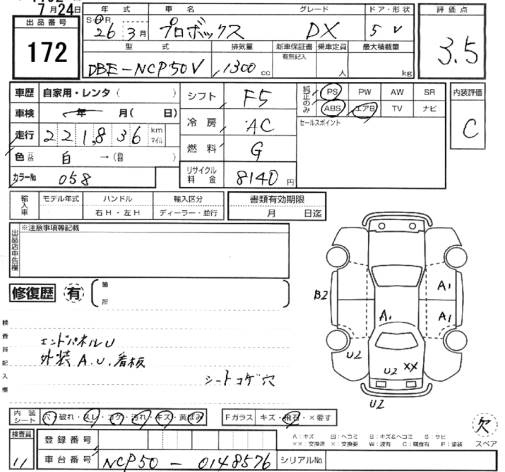 7月24日
出品番号
172
年式 車名 グレード ドア・形状
SⒽR 26 3月 プロボックス DX 5 V
型式 排気量 新車保証書 乗車定員 最大積載量
有無記入
DBE-NCP50V 1300cc 人 kg
評価点
3.5
車歴 自家用・レンタ( )
車検 年 月( 日)
走行 221,836 km マイル
色 白 →( )
カラーNo 058
シフト F5
冷房 AC
燃料 G
リサイクル料金 8140円
純正のみ
PS PW AW SR
ABS エアB TV ナビ
セールスポイント
内装評価
C
輸入車 モデル年式 ハンドル 輸入区分
右H・左H ディーラー・並行
書類有効期限
月 日迄
出品店申告欄
※注意事項等記載
修復歴 有 箇所
検査員記入欄
エンドパネルU
外装A.U.看板
シートコゲ穴
B2 A1 A1 A1 U2 U2 XX U2
内装シート 穴・破れ・スレ・コゲ・汚れ・キズ・黄ばみ
Fガラス キズ・飛石・×要す
A:キズ U:ヘコミ B:キズ&ヘコミ S:サビ
××:交換済 ×:交換要 W:波有 C:腐食有 P:塗装
欠
スペア
検査員
11
登録番号
車台番号 NCP50-0148576 シリアルNo